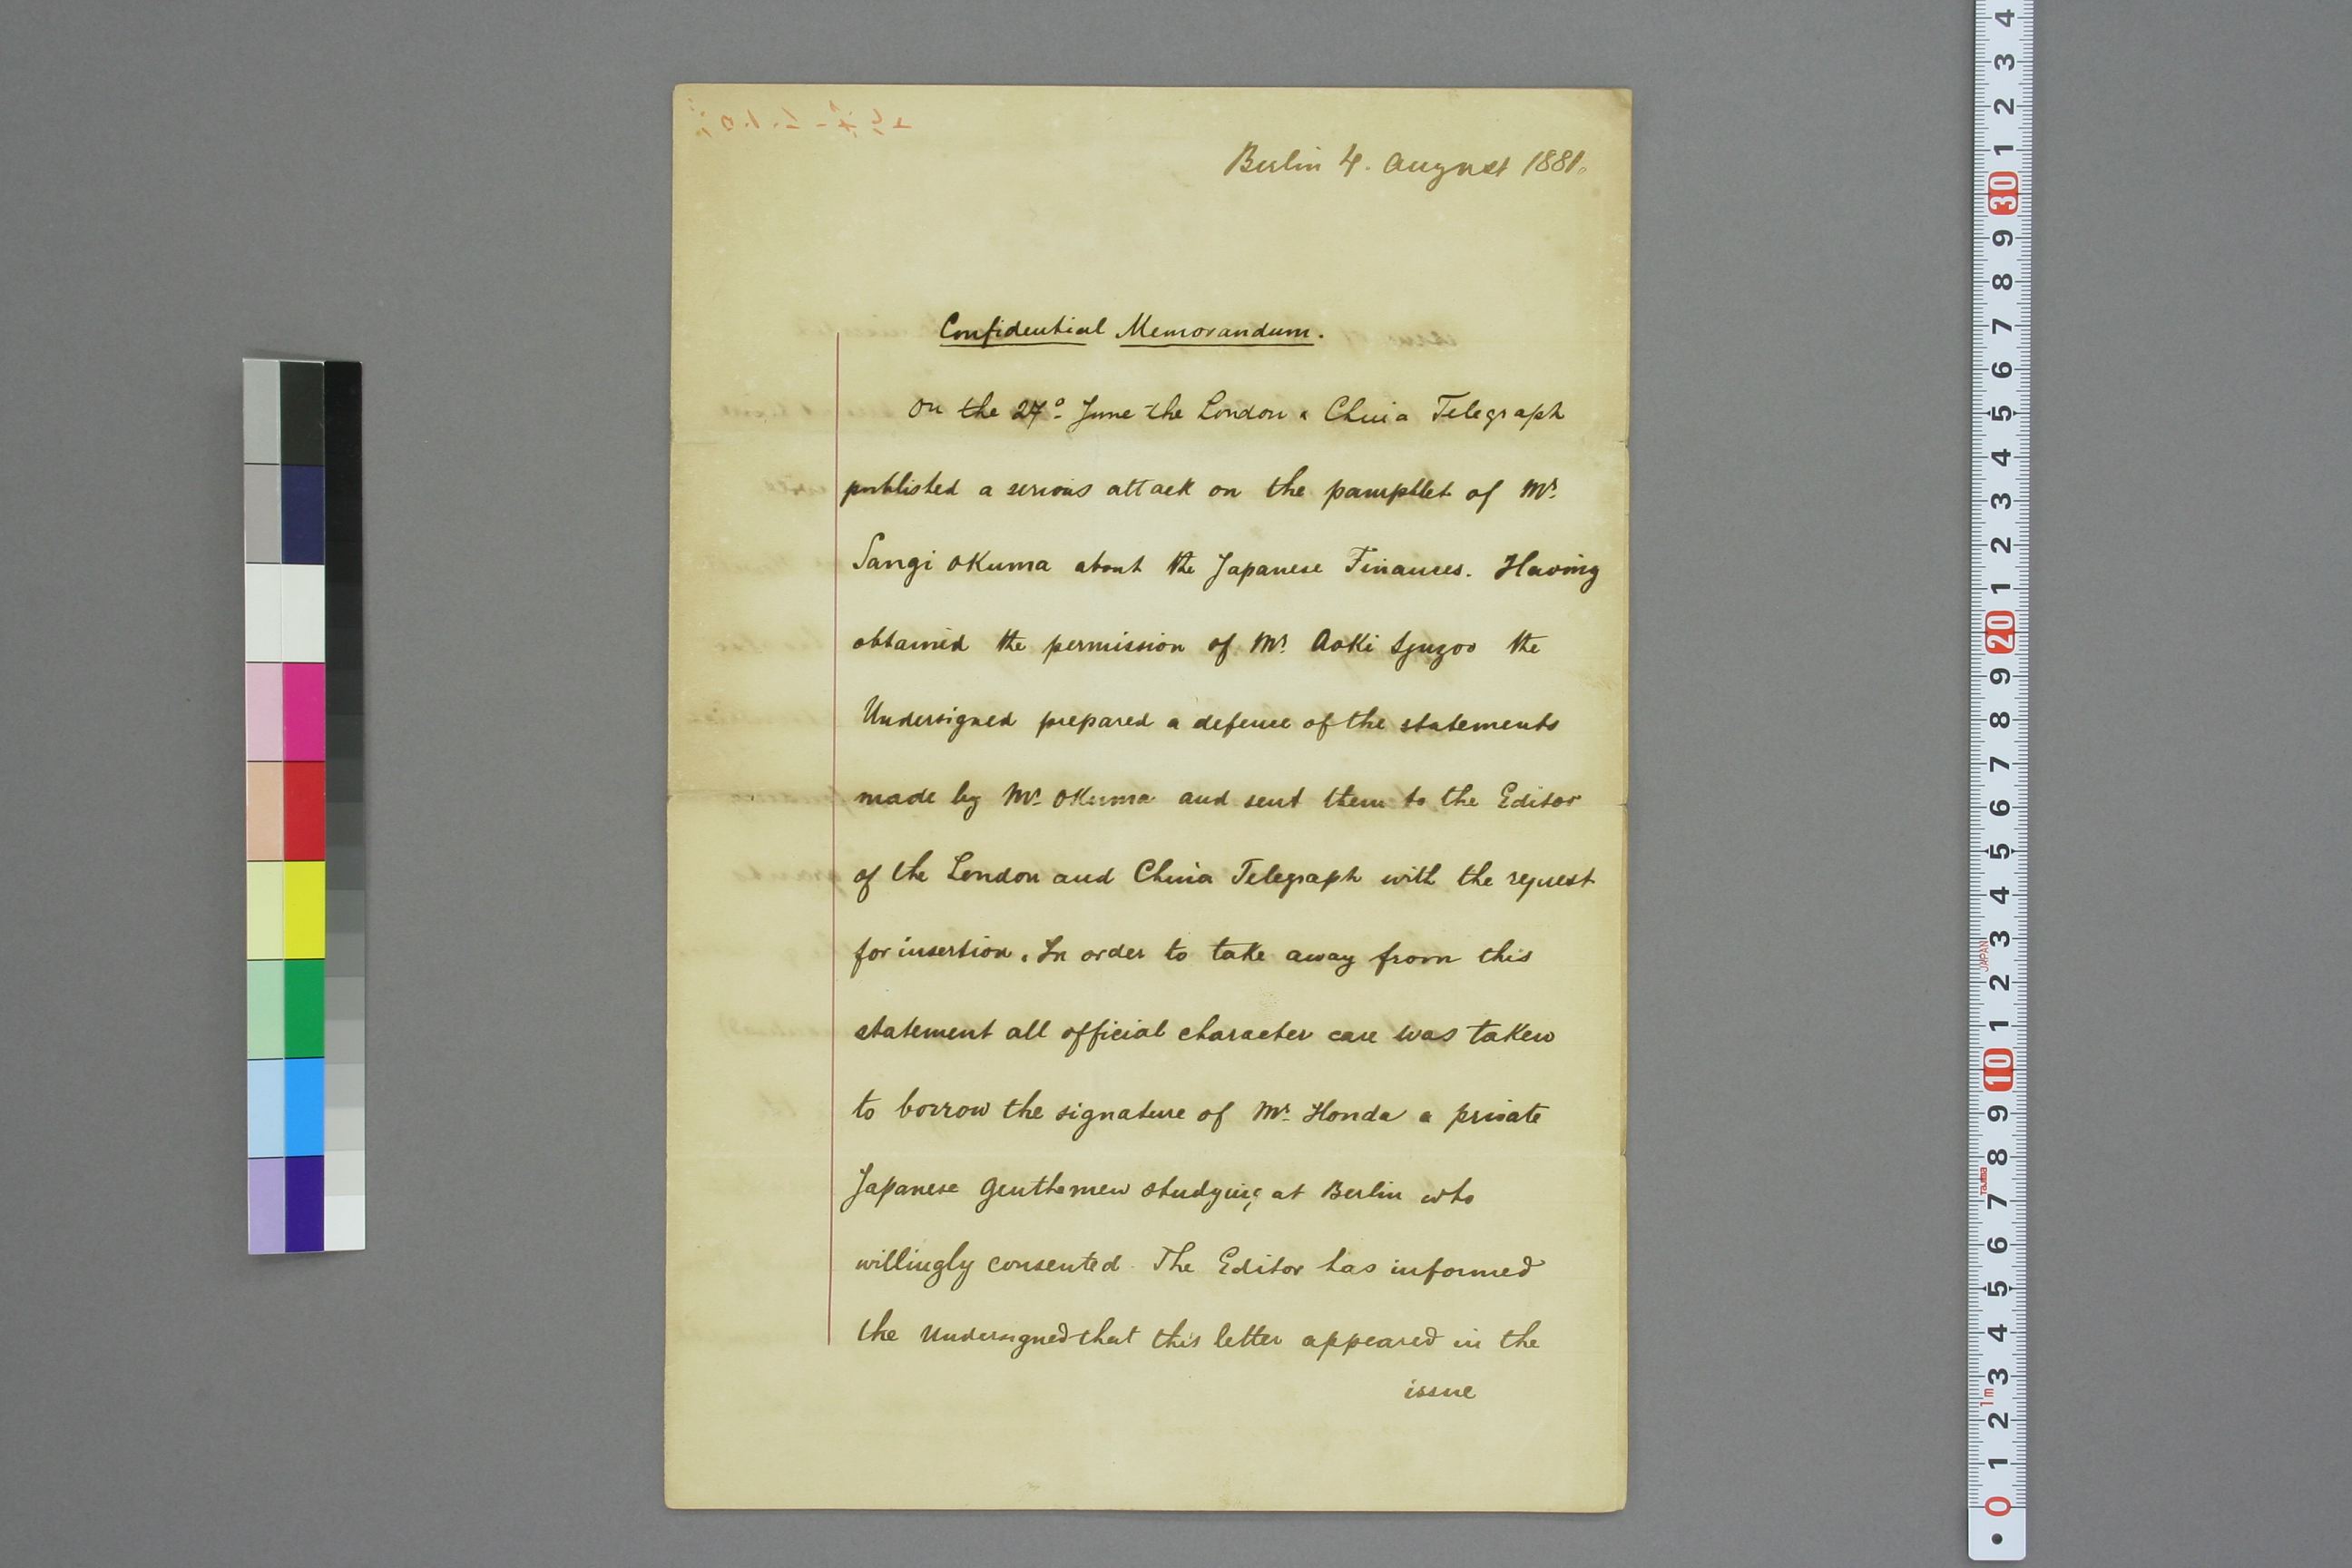 Berlin 4. August 1881.
Confidential Memorandum.
On the 27º June the London & China Telegraph
published a serious attack on the pamphlet of Mr.
Sangi Okuma about the Japanese Finances. Having
obtained the permission of Mr. Aoki Sjuzoo the
Undersigned prepared a defence of the statements
made by Mr. Okuma and sent them to the Editor
of the London and China Telegraph with the request
for insertion. In order to take away from this
statement all official character care was taken
to borrow the signature of Mr. Honda a private
Japanese Gentlemen studying at Berlin who
willingly consented. The Editor has informed
the Undersigned that this letter appeared in the
issue
4
3
2
1
30
9
8
7
6
5
4
3
2
1
20
9
8
7
6
5
4
3
JAPAN
2
1
10
9
8
Tajima
7
6
5
4
3
1m
2
1
0